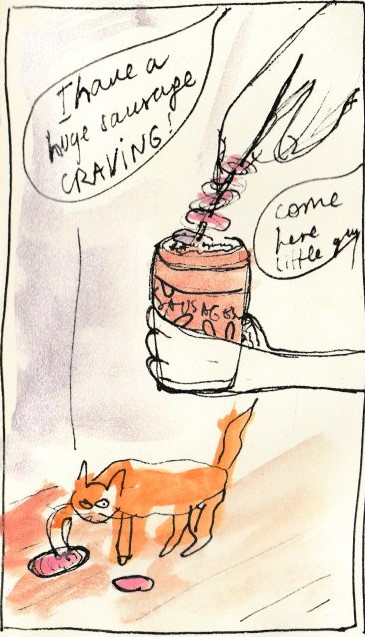 I have a
huge sausage
CRAVING!
come
here
little guy
SAUSAGES